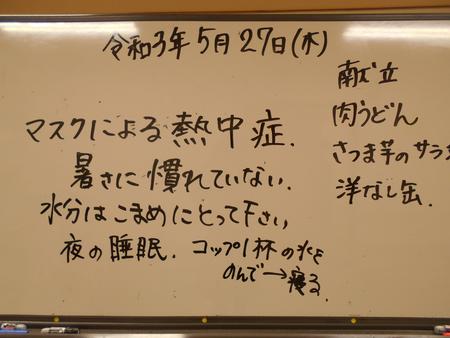 令和3年5月27日(木)
マスクによる熱中症.
暑さに慣れていない.
水分はこまめにとって下さい
夜の睡眠. コップ1杯の水を
のんで→寝る.
献立
肉うどん
さつま芋のサラダ
洋なし缶.